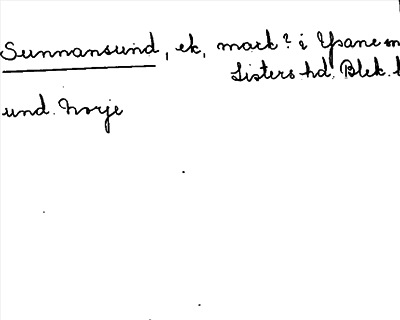 Sunnansund, ek, mark? i Ysane sn
Listers hd. Blek. l
und. Norje